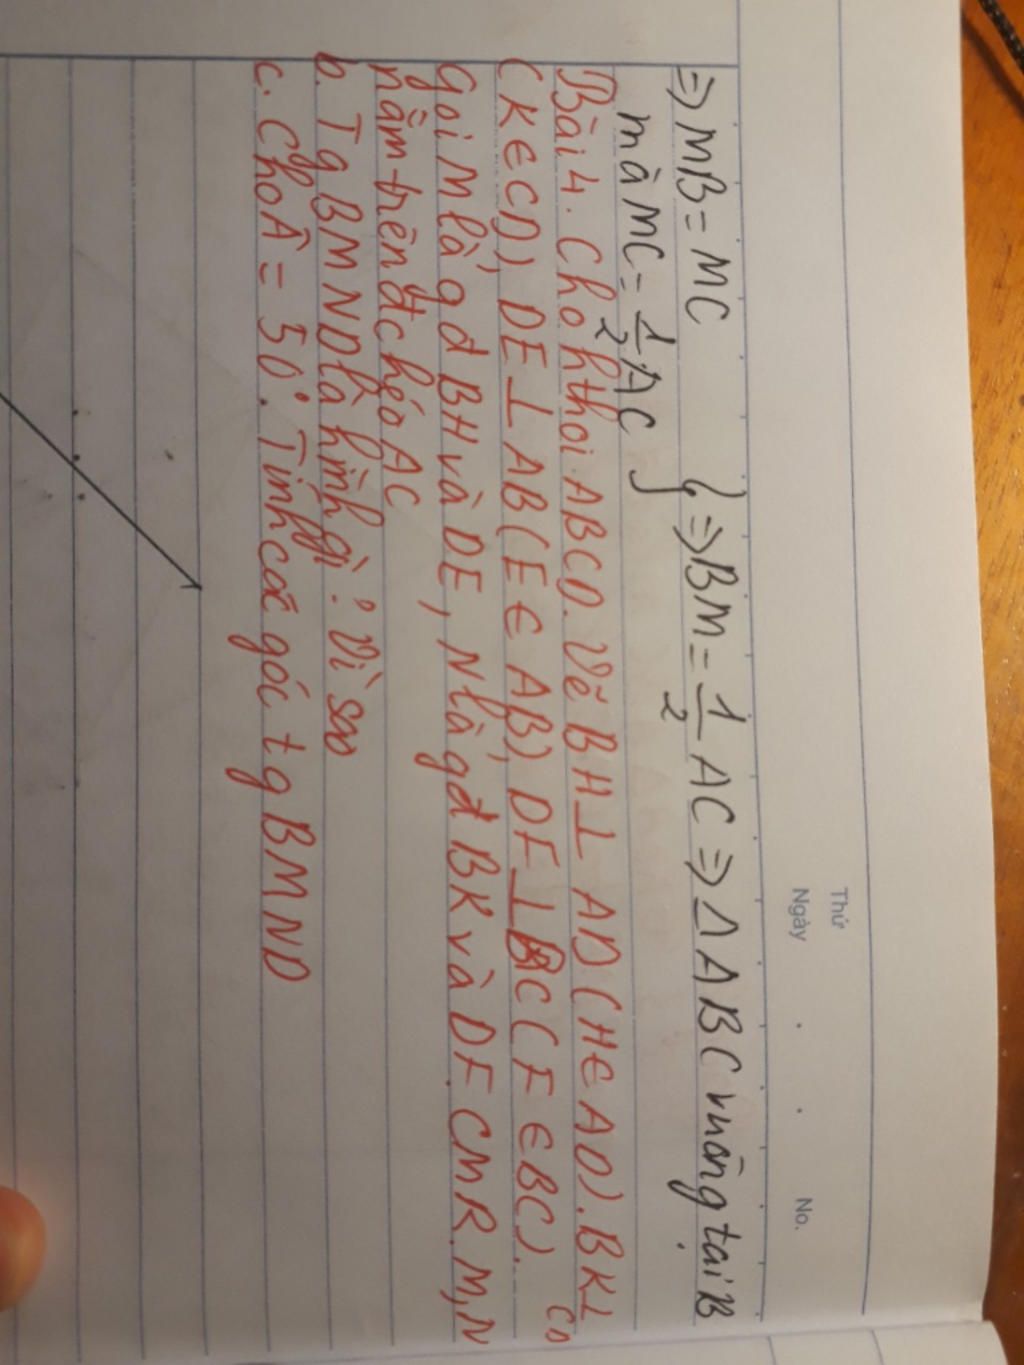 Thứ
Ngày . . No.
=> MB = MC } => BM = 1/2 AC => △ABC vuông tại B
mà MC = 1/2 AC
Bài 4. Cho hthoi ABCD. Vẽ BH ⊥ AD (H ∈ AD). BK ⊥ CD
(K ∈ CD), DE ⊥ AB (E ∈ AB), DF ⊥ BC (F ∈ BC).
Gọi M là gđ BH và DE, N là gđ BK và DF. CMR. M, N
nằm trên đchéo AC
b. Tg BMND là hình gì? Vì sao
c. Cho Â = 50°. Tính các góc tg BMND